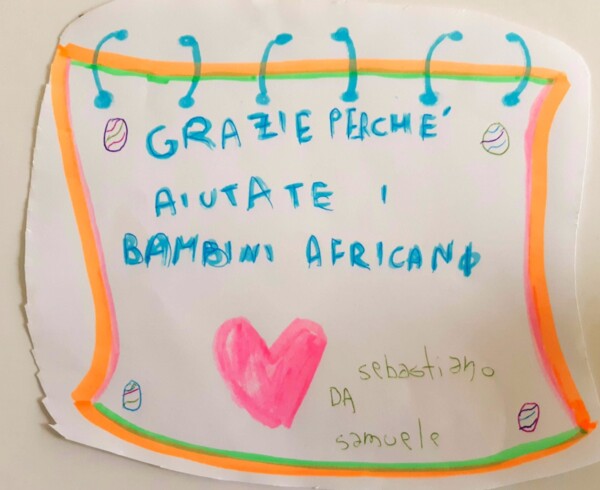 GRAZIE PERCHE´
AIUTATE I
BAMBINI AFRICANI
sebastiano
DA
samuele